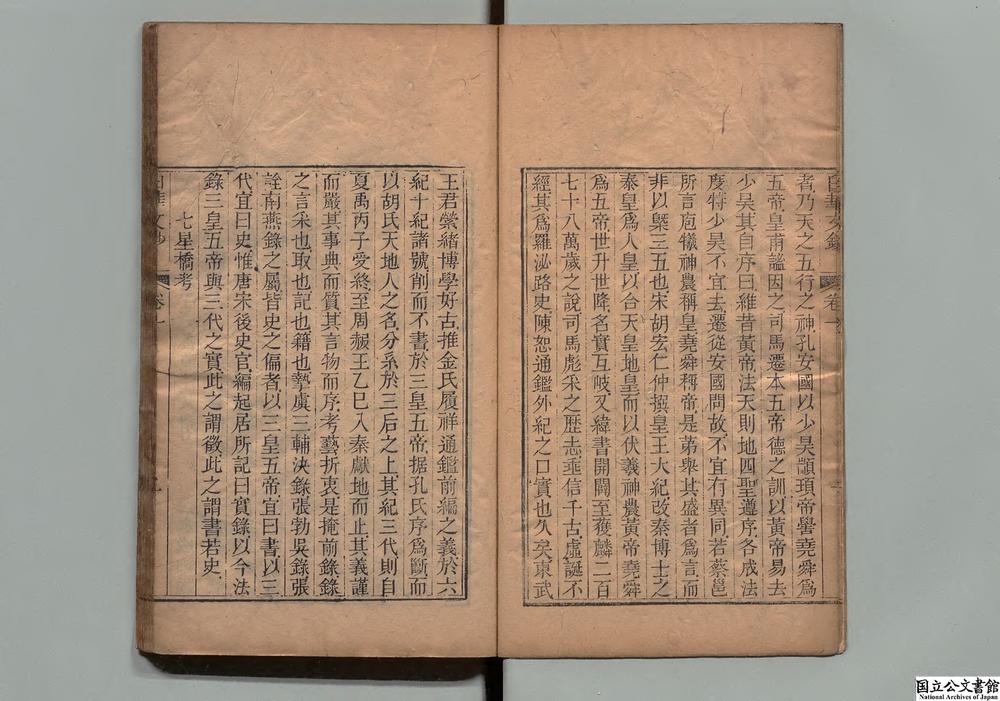 者乃天之五行之神孔安國以少昊顓頊帝嚳堯舜爲
五帝皇甫謐因之司馬遷本五帝德之訓以黃帝易去
少昊其自序曰維昔黃帝法天則地四聖遵序各成法
度特少昊不宜去遷從安國問故不宜有異同若蔡邕
所言庖犧神農稱皇堯舜稱帝是苐舉其盛者爲言而
非以槩三五也宋胡宏仁仲撰皇王大紀改秦博士之
泰皇爲人皇以合天皇地皇而以伏羲神農黃帝堯舜
爲五帝世升世降名實互岐又緯書開闢至獲麟二百
七十八萬歲之說司馬彪采之歷志乖信千古虛誕不
經其爲羅泌路史陳恕通鑑外紀之口實也久矣東武
王君縈緒博學好古推金氏履祥通鑑前編之義於六
紀十紀諸號削而不書於三皇五帝据孔氏序爲斷而
以胡氏天地人之名分系於三后之上其紀三代則自
夏禹丙子受終至周赧王乙巳入秦獻地而止其義謹
而嚴其事典而質其言物而序考藝折衷是掩前錄錄
之言采也取也記也籍也摯虞三輔決錄張勃吳錄張
詮南燕錄之屬皆史之偏者以三皇五帝宜曰書以三
代宜曰史惟唐宋後史官編起居所記曰實錄以今法
錄三皇五帝與三代之實此之謂徵此之謂書若史
七星橋考
卷一
国立公文書館
National Archives of Japan